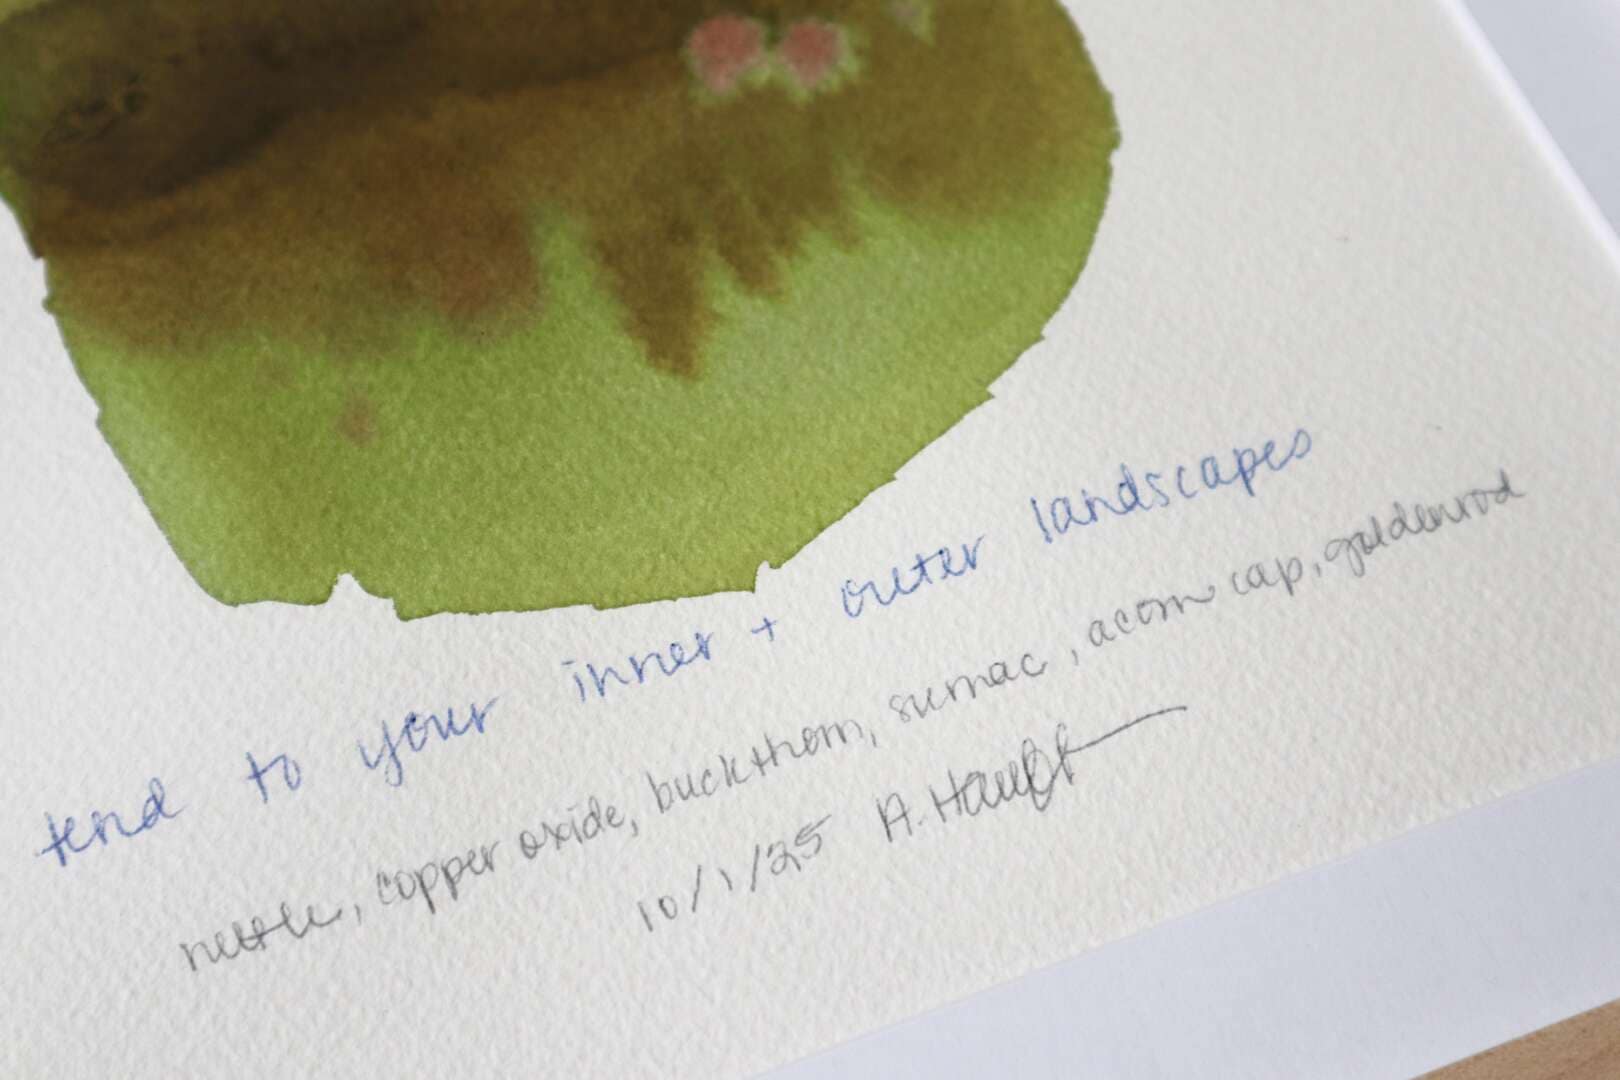 tend to your inner + outer landscapes
nettle, copper oxide, buckthorn, sumac, acorn cap, goldenrod
10/1/25 A. Haupt